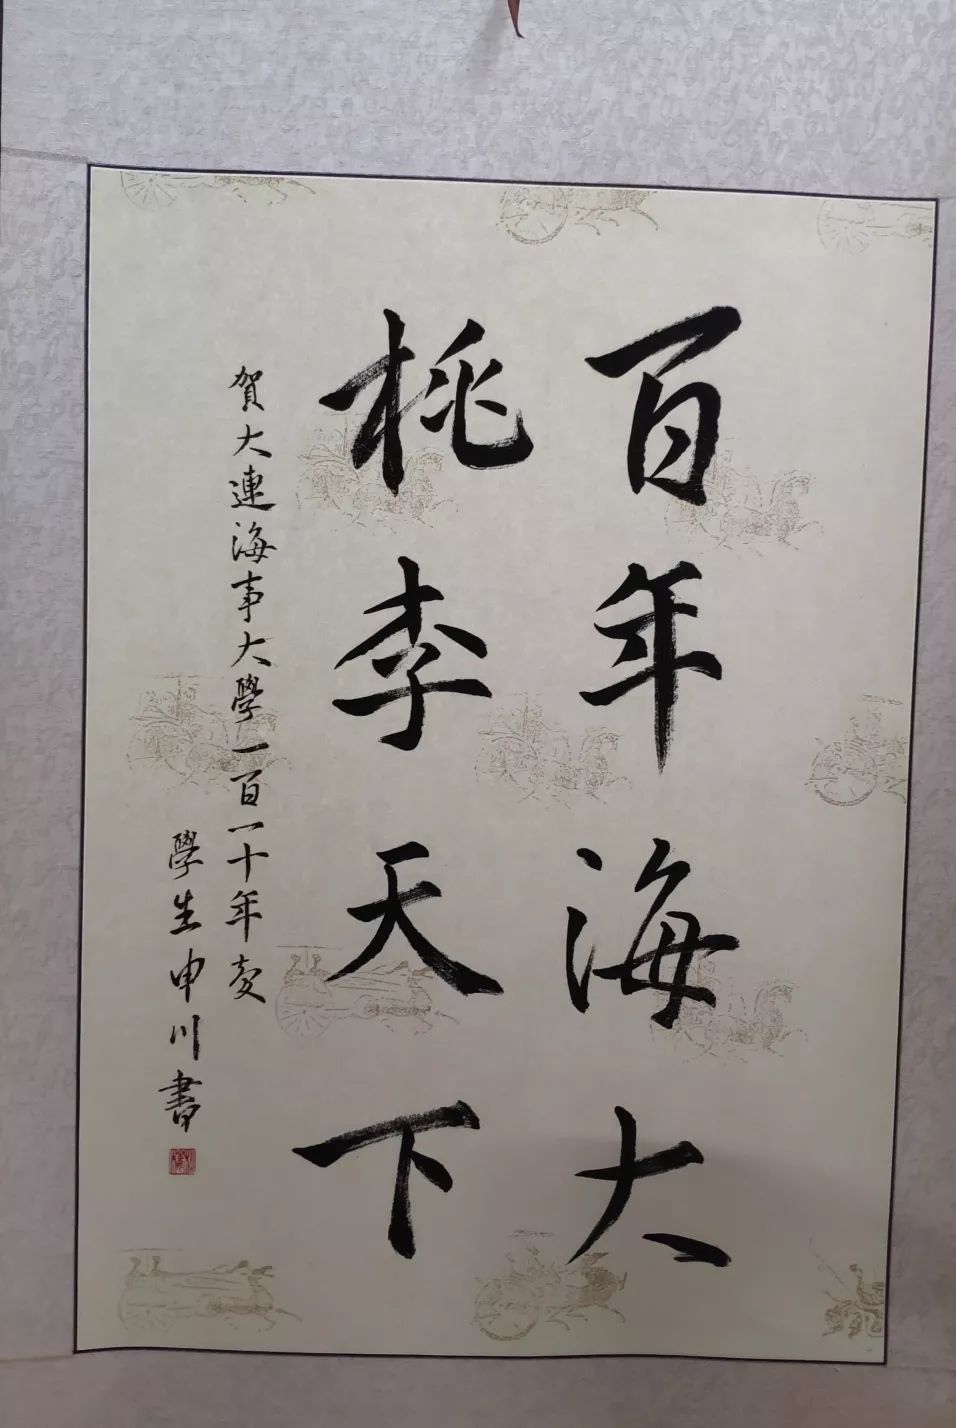 百年海大
桃李天下
賀大連海事大學一百一十年
學生申川書